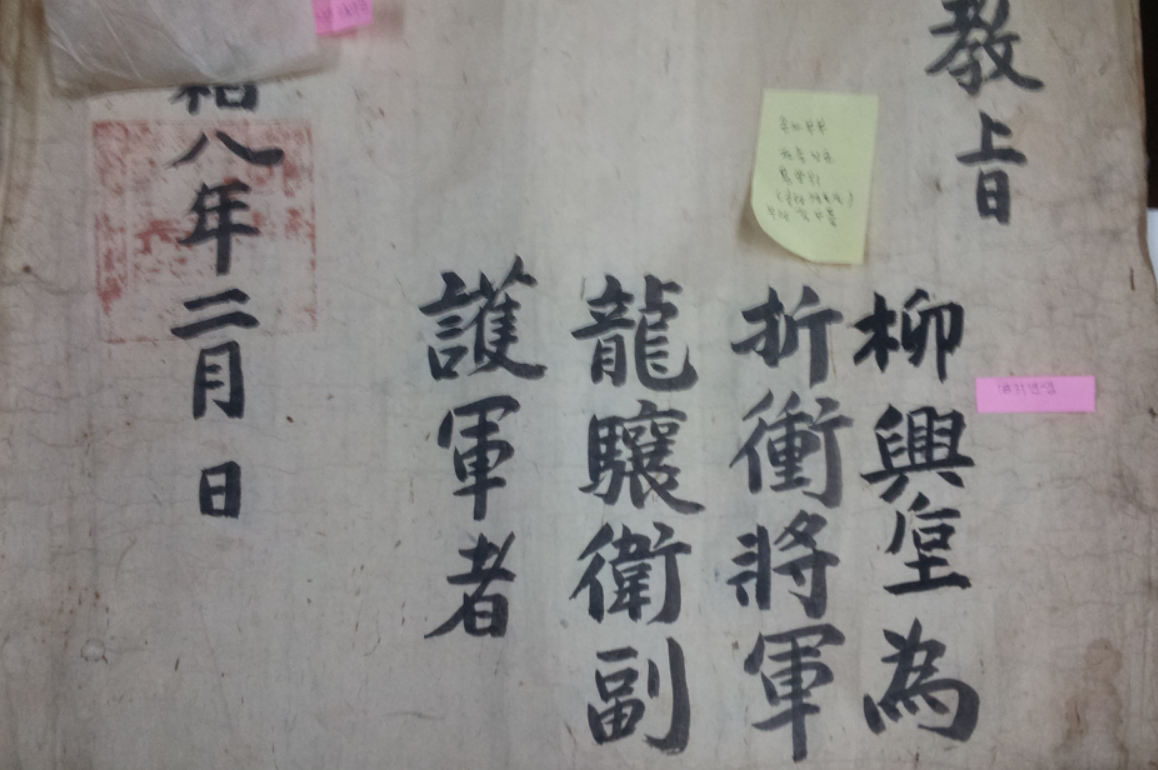 教旨
柳興 為
折衝將軍
龍驤衛副
護軍者
八年二月 日